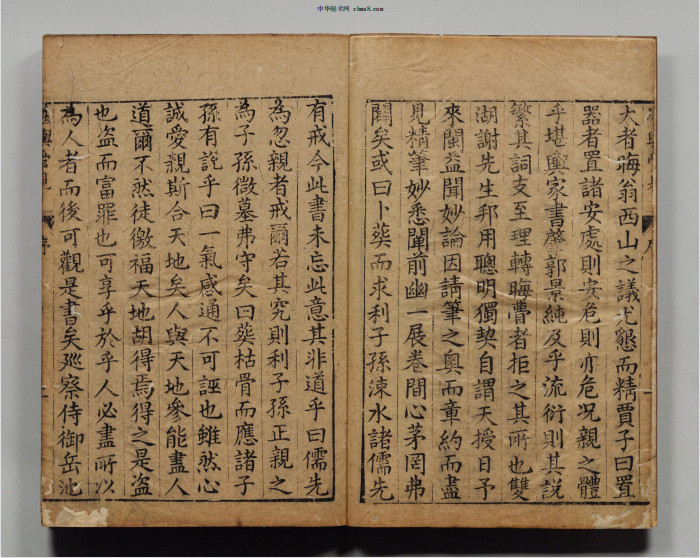 中华秘术网
大者晦翁西山之議尤懇而精賈子曰置
器者置諸安處則安危則亦危况親之體
乎堪輿家書肇郭景純及乎流衍則其說
繁其詞支至理轉晦曹者拒之其所也雙
湖謝先生邦用聰明獨契自謂天授日予
來閩益聞妙論因請筆之奥而章約而盡
見精筆妙悉闡前幽一展卷間心茅罔弗
闢矣或曰卜葬而求利子孫涑水諸儒先
有戒今此書未忘此意其非道乎曰儒先
為忽親者戒爾若其究則利子孫正親之
為子孫徼墓弗守矣曰葬枯骨而應諸子
孫有說乎曰一氣感通不可誣也雖然心
誠愛親斯合天地矣人與天地參能盡人
道爾不然徒徼福天地胡得焉得之是盗
也盗而富罪也可享乎於乎人必盡所以
為人者而後可觀是書矣廵察侍御岳池
序